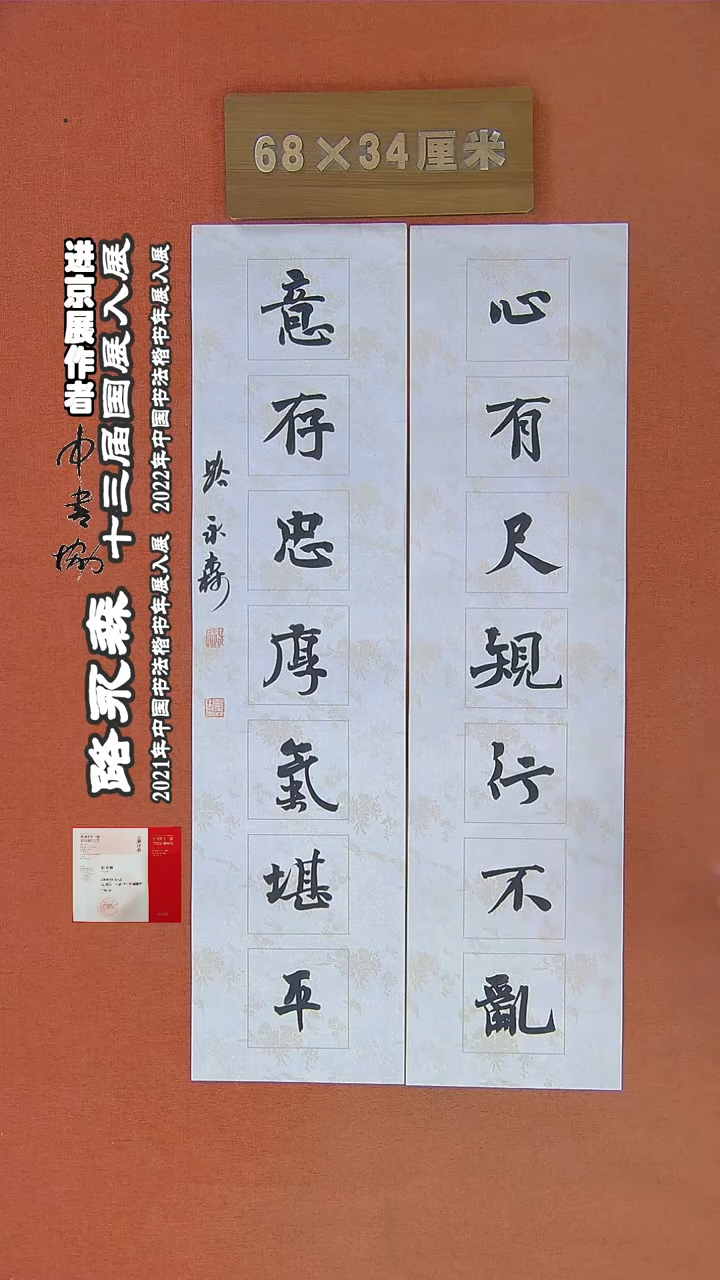 68×34厘米
心有尺规行不亂
意存忠厚氣堪平
路永森
进京展作者 中书协
路永森 十三届国展入展
2021年中国书法楷书年展入展 2022年中国书法楷书年展入展